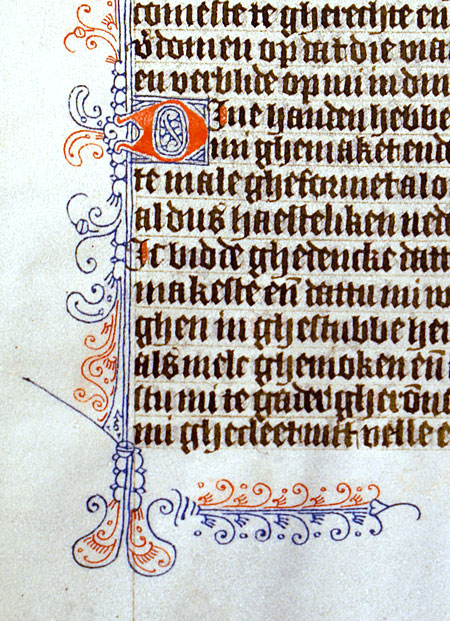 comeste te gherechte en
v'domen op dat die via
en verblide op mi in din
Dine handen hebbe
mi ghemaket end
te male gheformet al o
aldus haesteliken nede
Ic bidde ghedencke datt
makeste en̄ dattu mi w
ghen in ghestubbe he
als melc ghemoken en̄
stu mi te gader gherōn
mi ghecleet mitt velle e